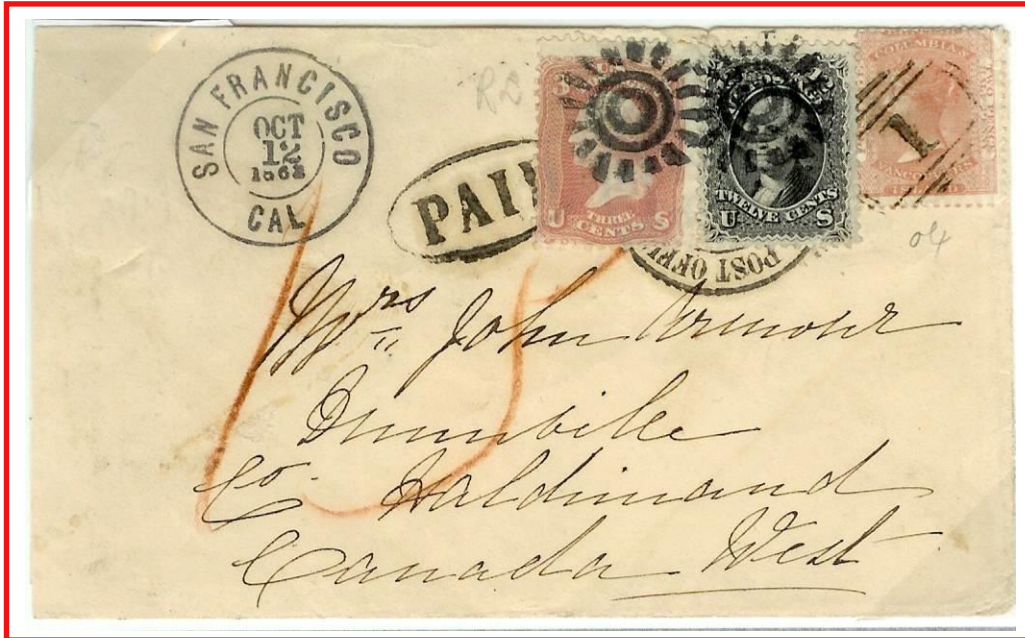 SAN FRANCISCO
OCT
12
CAL
PAI
3
U THREE S
CENTS
12
TWELVE CENTS
U S
COLUMBIA
1
POST OFF
R2
04
15
Mrs John Armour
Dunnville
Co Haldimand
Canada West